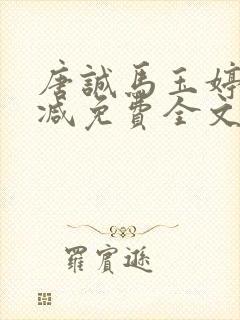 唐誠馬玉婷
減免費全文
羅賓遜